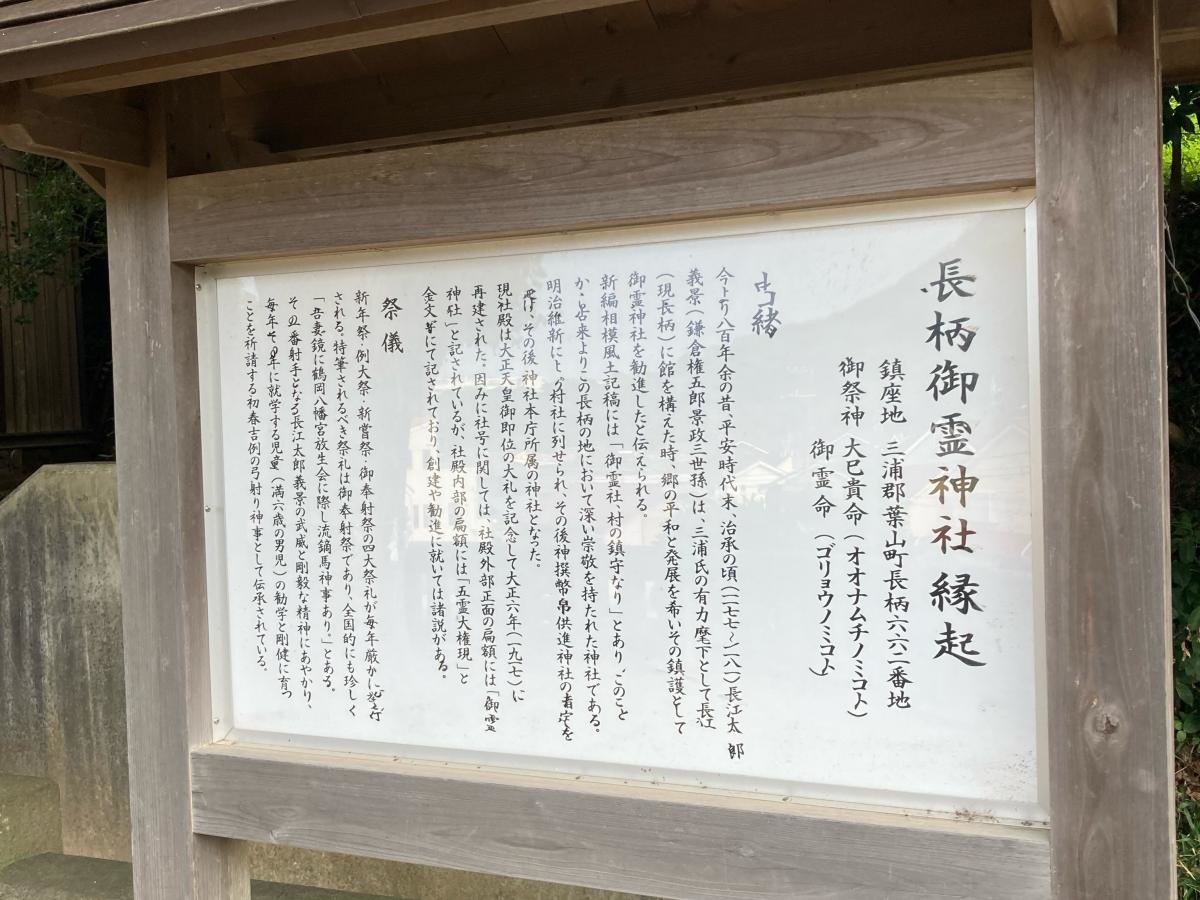 長柄御霊神社縁起
鎮座地 三浦郡葉山町長柄六六二番地
御祭神 大巳貴命(オオナムチノミコト)
御霊命(ゴリョウノミコト)
由緒
今より八百年余の昔、平安時代末、治承の頃(一一七七〜一一八一)長江太郎
義景(鎌倉権五郎景政三世孫)は、三浦氏の有力麾下として長江
(現長柄)に館を構えた時、郷の平和と発展を希いその鎮護として
御霊神社を勧進したと伝えられる。
新編相模風土記稿には「御霊社、村の鎮守なり」とあり、このこと
か 古来よりこの長柄の地において深い崇敬を持たれた神社である。
明治維新に 村社に列せられ、その後神撰幣帛供進神社の指定を
受け、その後神社本庁所属の神社となった。
現社殿は大正天皇御即位の大礼を記念して大正六年(一九一七)に
再建された。因みに社号に関しては、社殿外部正面の扁額には「御霊
神社」と記されているが、社殿内部の扁額には「五霊大権現」と
金文 にて記されており、創建や勧進に就いては諸説がある。
祭儀
新年祭・例大祭・新嘗祭・御奉射祭の四大祭礼が毎年厳かに挙行
される。特筆されるべき祭礼は御奉射祭であり、全国的にも珍しく
「吾妻鏡に鶴岡八幡宮放生会に際し流鏑馬神事あり。」とある。
その一番射手となる長江太郎義景の武威と剛毅な精神にあやかり、
毎年その年に就学する児童(満六歳の男児)の勧学と剛健に育つ
ことを祈請する初春吉例の弓射り神事として伝承されている。